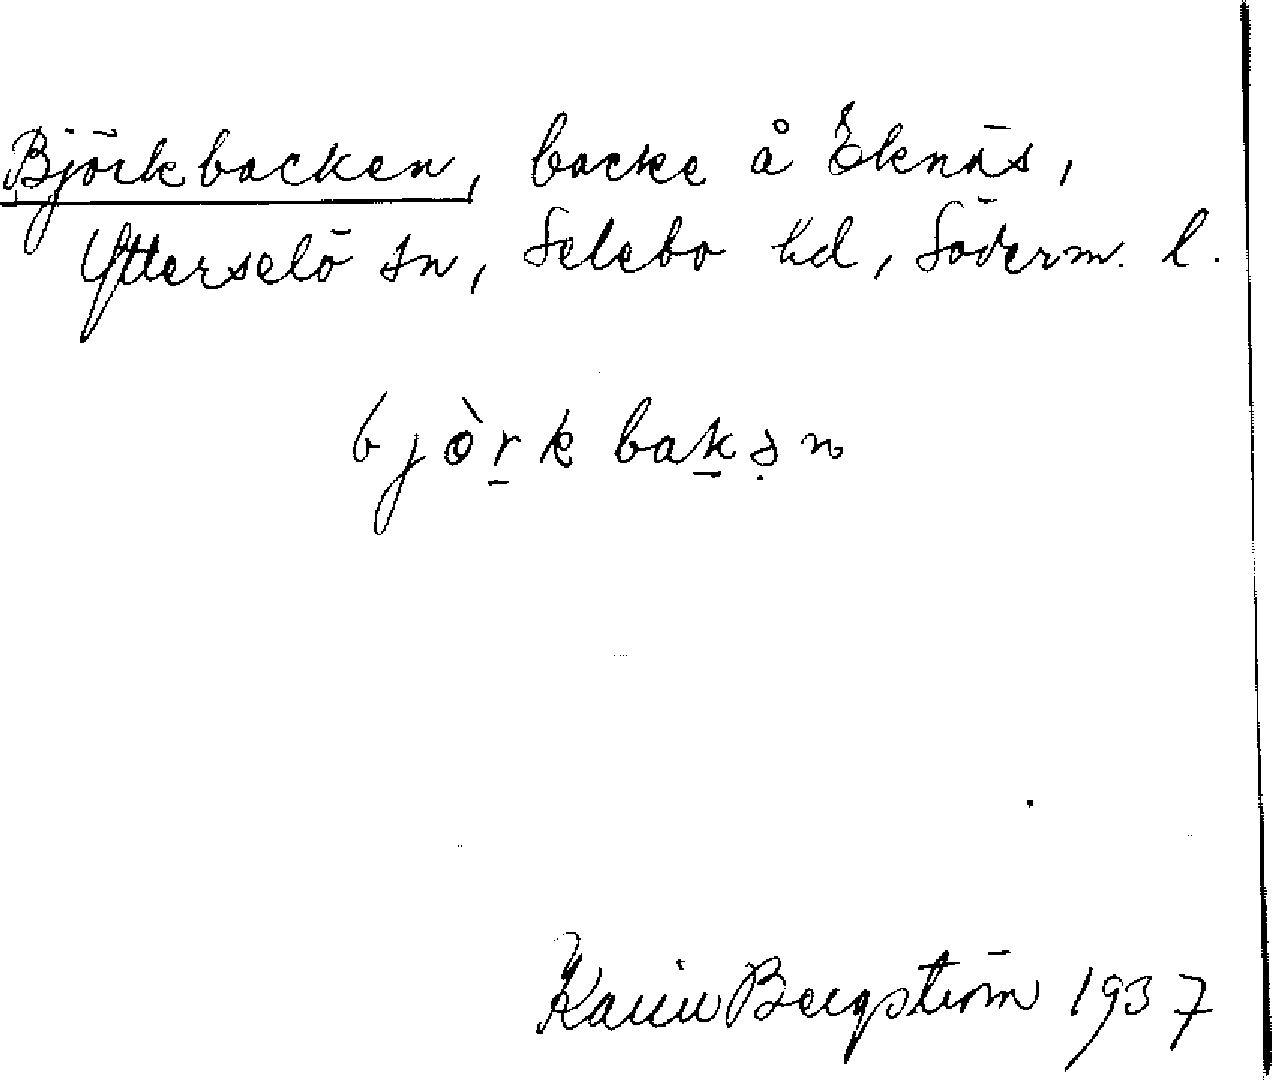 Björkbacken, backe å Eknäs,
Ytterselö sn, Selebo hd, Söderm. l.
bjòrkbakən
Karin Bergström 1937